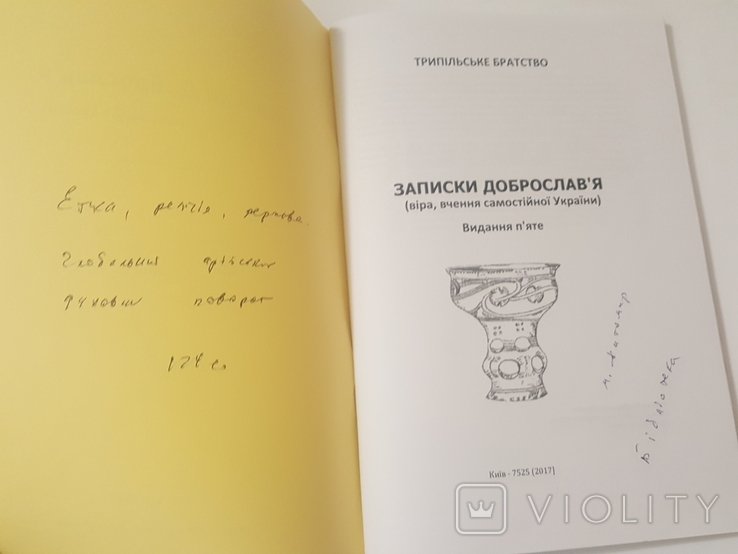 Етика, релігія, держава.
Глобальний арійський
духовний поворот
174 с.
ТРИПІЛЬСЬКЕ БРАТСТВО
ЗАПИСКИ ДОБРОСЛАВ'Я
(віра, вчення самостійної України)
Видання п'яте
м. Житомир
бібліотека
Київ - 7525 (2017]
VIOLITY